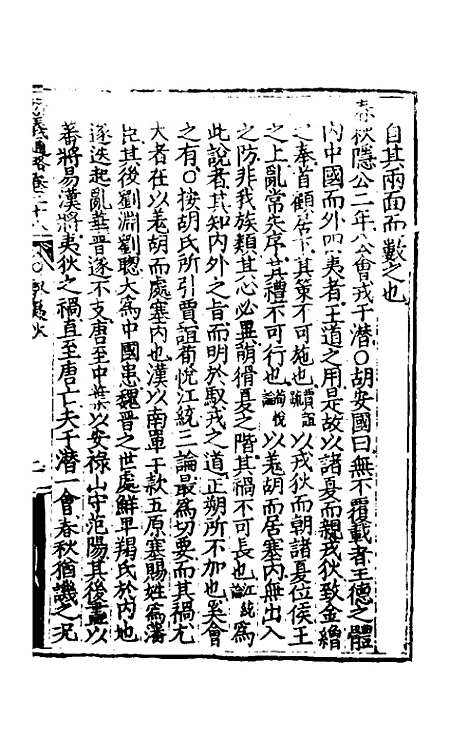 自其兩面而數之也
春秋隱公二年公會戎于潛○胡安國曰無不覆載者王德之體
內中國而外四夷者王道之用是故以諸夏而親戎狄致金繒
之奉首顧居下其策不可施也賈誼疏以戎狄而朝諸夏位侯王
之上亂常失序其禮不可行也荀悅論以羌胡而居塞內無出入
之防非我族類其心必異萌猾夏之階其禍不可長也江統論為
此說者其知內外之旨而明於馭戎之道正朔所不加也奚會
之有○按胡氏所引賈誼荀悅江統三論最為切要而其禍尤
大者在以羌胡而處塞內也漢以南單于款五原塞賜姓為藩
臣其後劉淵劉聰大為中國患魏晉之世處鮮卑羯氐於內地
遂迭起亂華晉遂不支唐至中葉以安祿山守范陽其後盡以
蕃將易漢將夷狄之禍直至唐亡夫于潛一會春秋猶譏之况
通略卷二十八